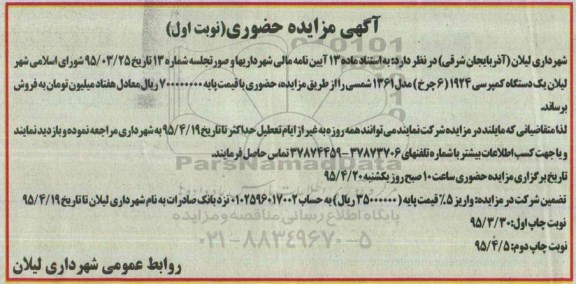 آگهی مزایده حضوری(نوبت اول)
شهرداری لیلان (آذربایجان شرقی) در نظر دارد: به استناد ماده ۱۳ آیین نامه مالی شهرداریها و صورتجلسه شماره ۱۳ تاریخ ۹۵/۰۳/۲۵ شورای اسلامی شهر
لیلان یک دستگاه کمپرسی ۱۹۲۴ (۶ چرخ) مدل ۱۳۶۱ شمسی را از طریق مزایده، حضوری با قیمت پایه ۷۰۰۰۰۰۰۰۰ ریال معادل هفتاد میلیون تومان به فروش
برساند.
لذا متقاضیانی که مایلند در مزایده شرکت نمایند می توانند همه روزه به غیر از ایام تعطیل حداکثر تا تاریخ ۹۵/۴/۱۹ به شهرداری مراجعه نموده و بازدید نمایند
و یا جهت کسب اطلاعات بیشتر با شماره تلفنهای ۳۷۸۷۳۷۰۶ – ۳۷۸۷۴۴۵۹ تماس حاصل فرمایند.
تاریخ برگزاری مزایده حضوری ساعت ۱۰ صبح روز یکشنبه ۹۵/۴/۲۰
تضمین شرکت در مزایده: واریز ۵٪ قیمت پایه (۳۵۰۰۰۰۰۰ ریال) به حساب ۰۱۰۲۵۹۶۰۱۷۰۰۲ نزد بانک صادرات به نام شهرداری لیلان تا تاریخ ۹۵/۴/۱۹
نوبت چاپ اول: ۹۵/۳/۳۰
نوبت چاپ دوم: ۹۵/۴/۵
روابط عمومی شهرداری لیلان
ParsNamadData
پایگاه اطلاع رسانی مناقصه و مزایده
۰۲۱-۸۸۳۴۹۶۷۰-۵